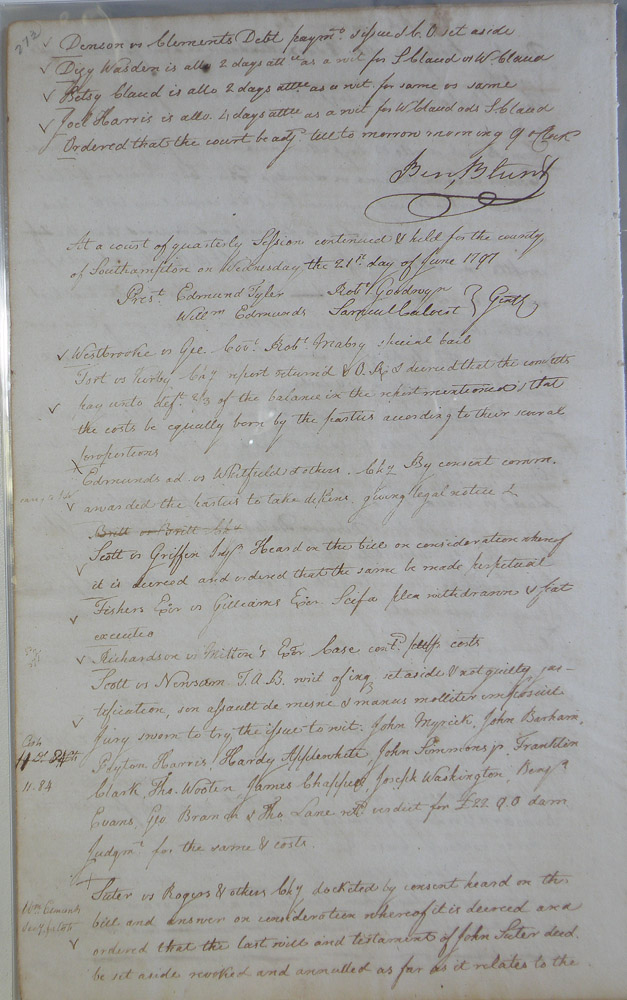 272
Denson vs Clements Debt paymt. & issue & C. O set aside
Dizy Wasden is allo 2 days attce as a wit for S Claud vs W Claud
Betsy Claud is allo 2 days attce as a wit for same vs same
Joel Harris is allo. 4 days attce as a wit for W Claud ads S Claud
Ordered that the court be adjd. till to morrow morning 9 o Clock
Ben, Blunt
At a court of quarterly Session continued & held for the county
of Southampton on Wednesday the 21st. day of June 1797
Prest. Edmund Tyler Robt. Goodwyn
Willm Edmunds Samuel Calvert } Gents
Westbrooke vs Gee. Robt. special bail
Tort vs Kirby Chy report returned & O. R. & decreed that the
pay unto deft. 2/3 of the balance in the report mentioned & that
the costs be equally born by the parties according to their several
proportions
Edmunds ad. vs Whitfield & others. Chy By consent comm.
awarded the parties to take depons. giving legal notice &
Britt vs Britt Chy
Scott vs Griffin Injn. Heard on the bill on consideration whereof
it is decreed and ordered that the same be made perpetual
Fishers Exor vs Gilliams Exor Scifa plea withdrawn & fiat
executio
Richardson vs Exor Case contd. pltffs costs
Scott vs Newsum T. A. B. writ of inq. set aside & not guilty jus-
tification, son assault de mesne & manus molliter imposuit
Jury sworn to try the issue to wit. John Myrick, John Barham,
Peyton Harris, Hardy Applewhite, John Simmons jr. Franklin
Clark, Tho. Wooten James Chappell, Joseph Washington, Benja.
Evans, Geo. Branch & Tho. Lane retd. verdict for £22. 0. 0 dam
11. 84
Judgmt. for the same & costs.
Suter vs Rogers & others Chy docketed by consent heard on the
bill and answer on consideration whereof it is decreed and
ordered that the last will and testament of John Suter decd.
be set aside revoked and annulled as far as it relates to the